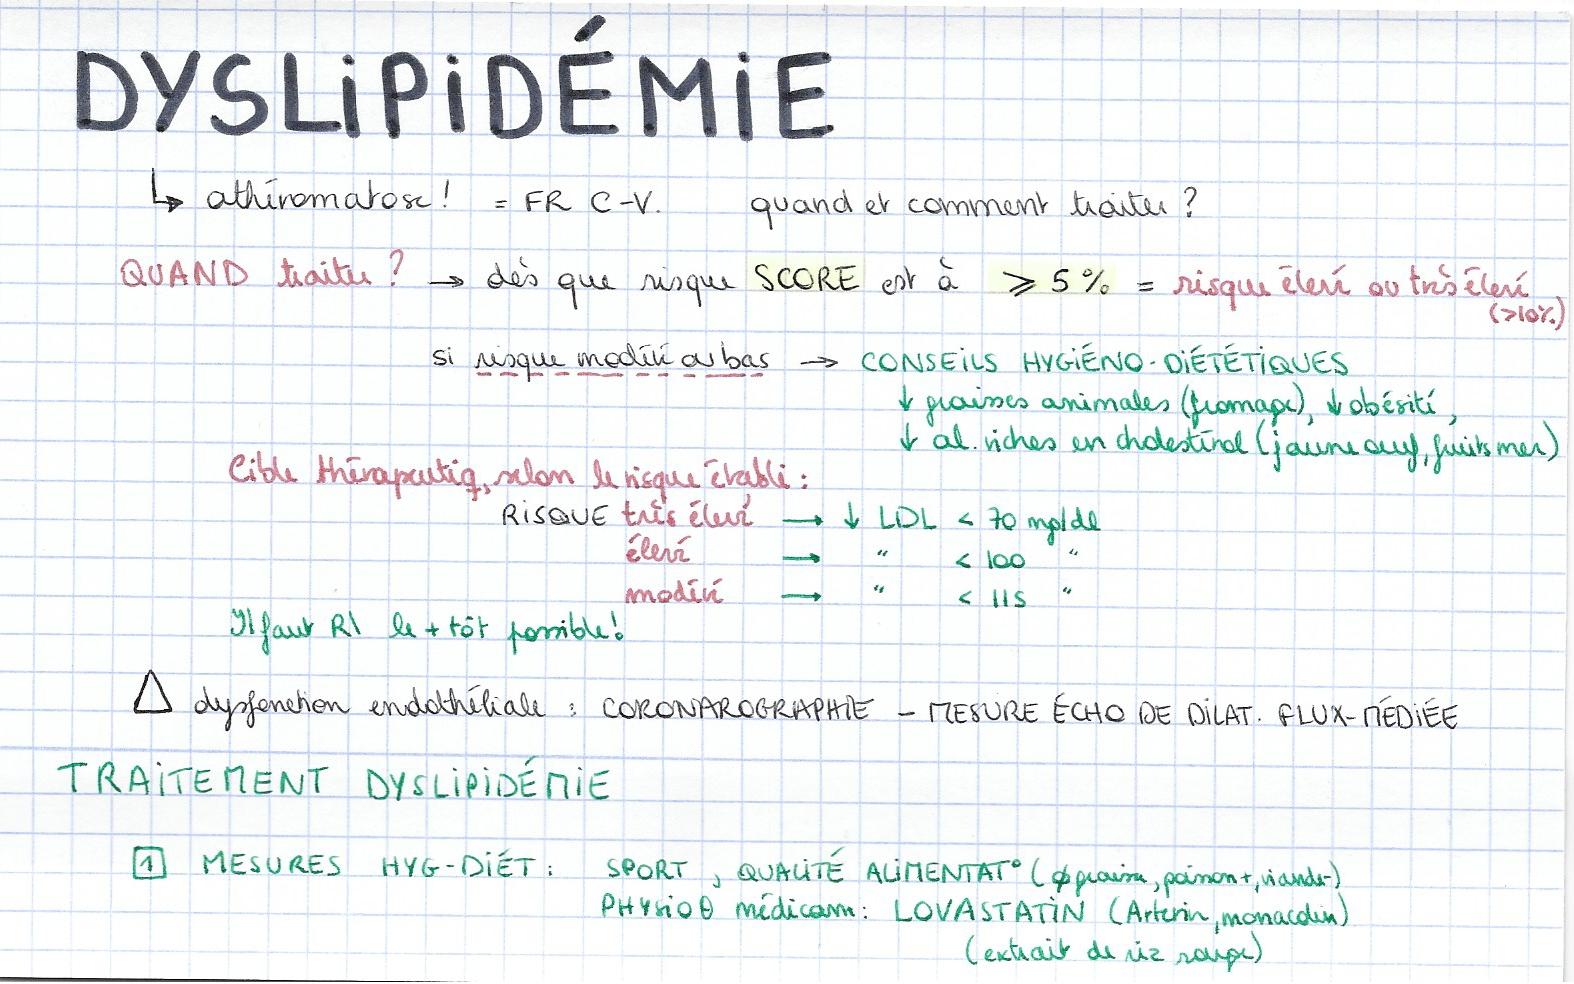 DYSLIPIDÉMIE
↳ athéromatose! = FR C-V. quand et comment traiter ?
QUAND traiter ? → dès que risque SCORE est à ⩾ 5 % = risque élevé ou très élevé
(>10%)
si risque modéré ou bas → CONSEILS HYGIÉNO-DIÉTÉTIQUES
↓ graisses animales (fromage), ↓ obésité,
↓ al. riches en cholestérol (jaune œuf, fruits mer)
Cible thérapeutiq, selon le risque établi :
RISQUE très élevé → ↓ LDL < 70 mg/dl
élevé → " < 100 "
modéré → " < 115 "
Il faut R\ le + tôt possible!
△ dysfonction endothéliale : CORONAROGRAPHIE - MESURE ÉCHO DE DILAT. FLUX-MÉDIÉE
TRAITEMENT DYSLIPIDÉMIE
1 MESURES HYG-DIÉT : SPORT, QUALITÉ ALIMENTAT° (ϕ graisse, poisson+, viande-)
PHYSIOθ médicam : LOVASTATIN (Arterin, monacolin)
(extrait de riz rouge)